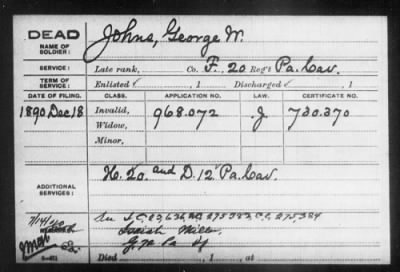 DEAD
NAME OF SOLDIER:
Johns, George W.
SERVICE:
Late rank, Co. F, 20 Reg't Pa. Cav.
TERM OF SERVICE:
Enlisted , 1 Discharged , 1
DATE OF FILING. CLASS. APPLICATION NO. LAW. CERTIFICATE NO.
1890 Dec 18 Invalid, 968.072 J 730.370
Widow,
Minor,
ADDITIONAL SERVICES:
H. 20 and D. 12" Pa. Cav.
7/14/20
Died , 1 at